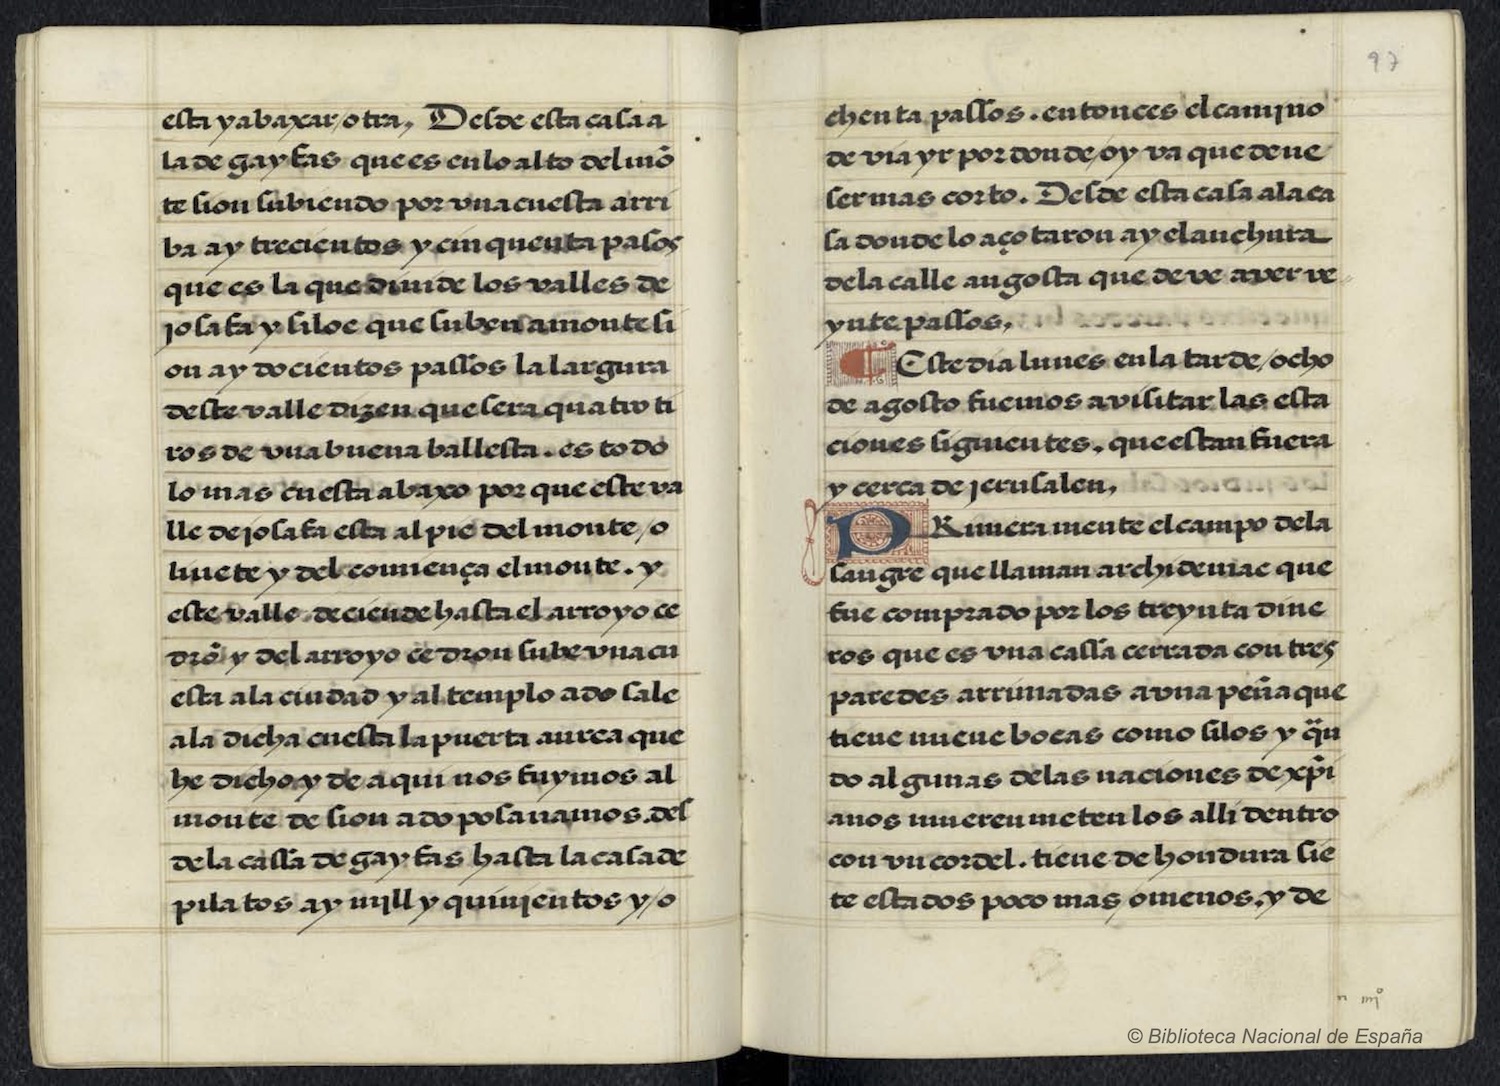 esta y abaxar, o tra, Desde esta casa a
la de gayfas que es en lo alto del mõ
te sion subiendo por vna cuesta arri
ba ay trecientos y cinquenta pasos
que es la que diuide los valles de
josafa y siloe que suben a monte si
on ay docientos passos la largura
deste valle dizen que sera quatro ti
ros de vna buena ballesta. es todo
lo mas cuesta abaxo por que este va
lle de josafa esta al pie del monte, o
liuete y del comiença el monte. y
este valle deciende hasta el arroyo ce
drõ y del arroyo cedron sube vna cu
esta a la ciudad y al templo a do sale
a la dicha cuesta la puerta aurea que
he dicho, y de aqui nos fuymos al
monte de sion a do posauamos. des
de la cassa de gayfas hasta la casa de
pilatos ay mjll y quinientos y, o
97
chenta passos. entonces el camjno
deuia yr por donde oy va que deue
ser mas corto. Desde esta casa a la ca
sa donde lo açotaron ay el anchura
de la calle angosta que deve aver ve
ynte passos,
Este dia lunes en la tarde, ocho
de agosto fuemos a visitar las esta
ciones siguientes. que estan fuera
y cerca de jerusalen,
PRimera mente el campo de la
sangre que llaman archidemac que
fue comprado por los treynta dine
ros que es vna cassa cerrada con tres
paredes arrimadas a vna peña que
tiene nueue bocas como silos y qũn
do algunas de las naciones de xp̃i
anos mueren meten los alli dentro
con vn cordel. tiene de hondura sie
te estados poco mas, o menos. y de
n iiijº
© Biblioteca Nacional de España